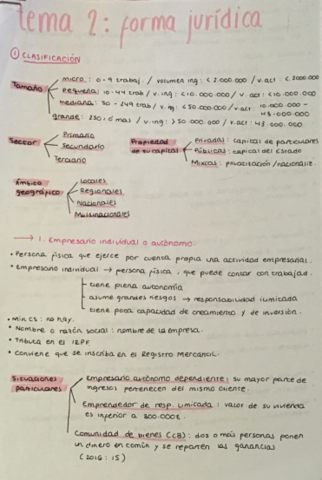 tema 2: forma jurídica
① CLASIFICACIÓN
Tamaño
micro: 0-9 trabaj. / volumen ing: < 2.000.000 / v.act: < 2000.000
Pequeña: 10-49 trab / v.ing: < 10.000.000 / v.act: < 10.000.000
mediana: 50-249 trab / v.ing: < 50.000.000 / v.act: 10.000.000 -
43.000.000
grande: 250 ó mas / v.ing: > 50.000.000 / v.act: 43.000.000
Sector
Primario
Secundario
Terciario
Propiedad de su capital
Privadas: capital de particulares
Públicas: capital del Estado
Mixtas: privatización/nacionaliz.
Ámbito geográfico
Locales
Regionales
Nacionales
Multinacionales
→ 1. Empresario individual o autónomo.
• Persona física que ejerce por cuenta propia una actividad empresarial.
• Empresario individual → persona física, que puede contar con trabajad.
tiene plena autonomía
asume grandes riesgos → responsabilidad ilimitada
tiene poca capacidad de crecimiento y de inversión.
• Min CS: no hay.
• Nombre o razón social: nombre de la empresa.
• Tributa en el IRPF
• Conviene que se inscriba en el Registro Mercantil.
Situaciones particulares
Empresario autónomo dependiente: su mayor parte de
ingresos pertenecen del mismo cliente.
Emprendedor de resp. limitada: valor de su vivienda
es inferior a 300.000€.
Comunidad de bienes (CB): dos o más personas ponen
un dinero en común y se reparten las ganancias
(2016: 15)